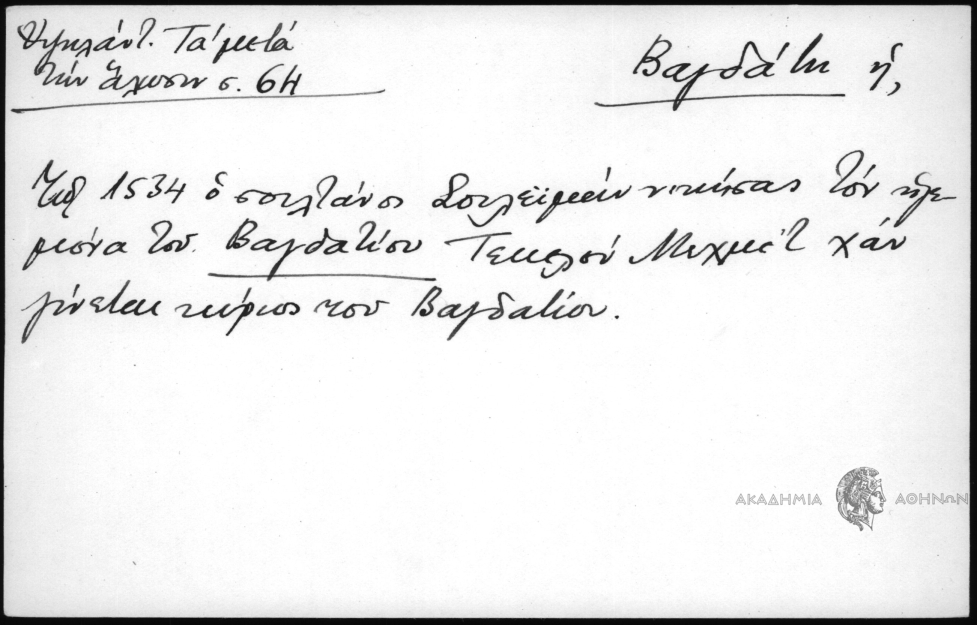 Ὑψηλάντ. Τά μετά
τήν ἅλωσιν σ. 64
Βαγδάτη ἡ,
Τῷ 1534 ὁ σουλτάνος Σουλεϊμάν νικήσας τόν ἡγε-
μόνα τοῦ Βαγδατίου Τεκελού Μεχμέτ χάν
γίνεται κύριος τοῦ Βαγδατίου.
ΑΚΑΔΗΜΙΑ ΑΘΗΝΩΝ